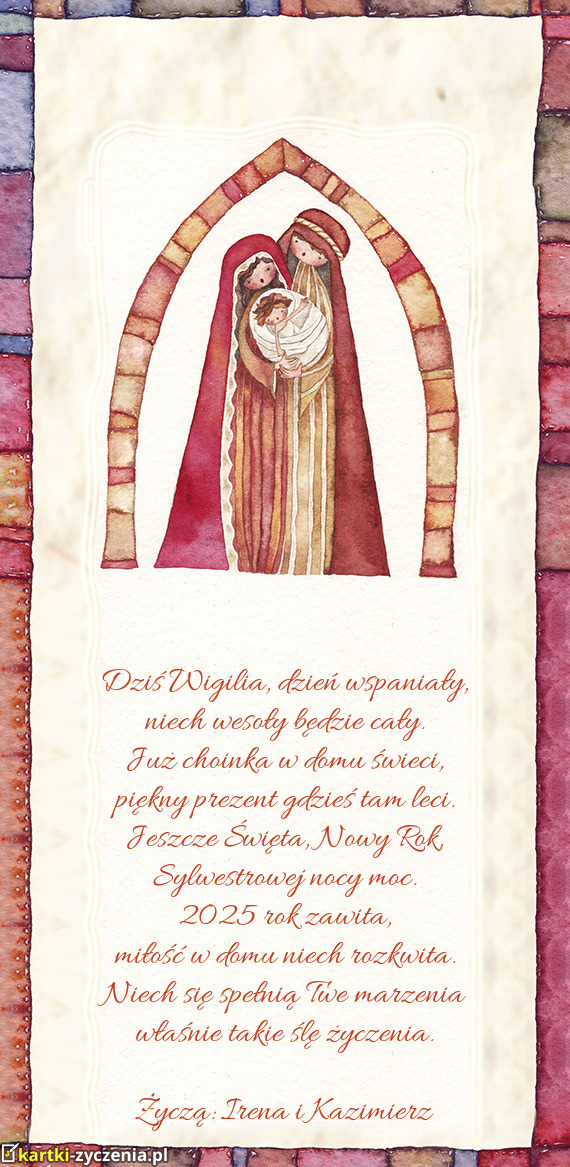 Dziś Wigilia, dzień wspaniały,
niech wesoły będzie cały.
Już choinka w domu świeci,
piękny prezent gdzieś tam leci.
Jeszcze Święta, Nowy Rok,
Sylwestrowej nocy moc.
2025 rok zawita,
miłość w domu niech rozkwita.
Niech się spełnią Twe marzenia
właśnie takie ślę życzenia.
Życzą: Irena i Kazimierz
kartki-zyczenia.pl